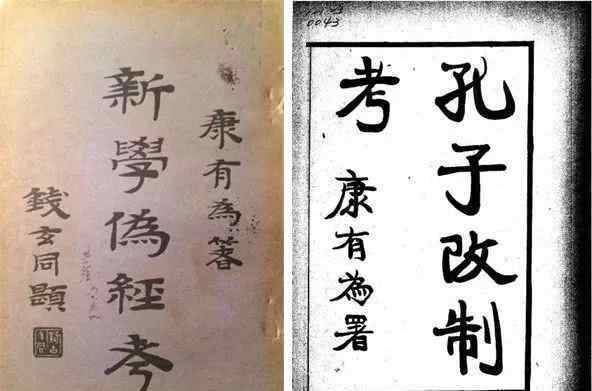 康有為箸
新學偽經考
錢玄同題
0043
孔子改制
考
康有為署